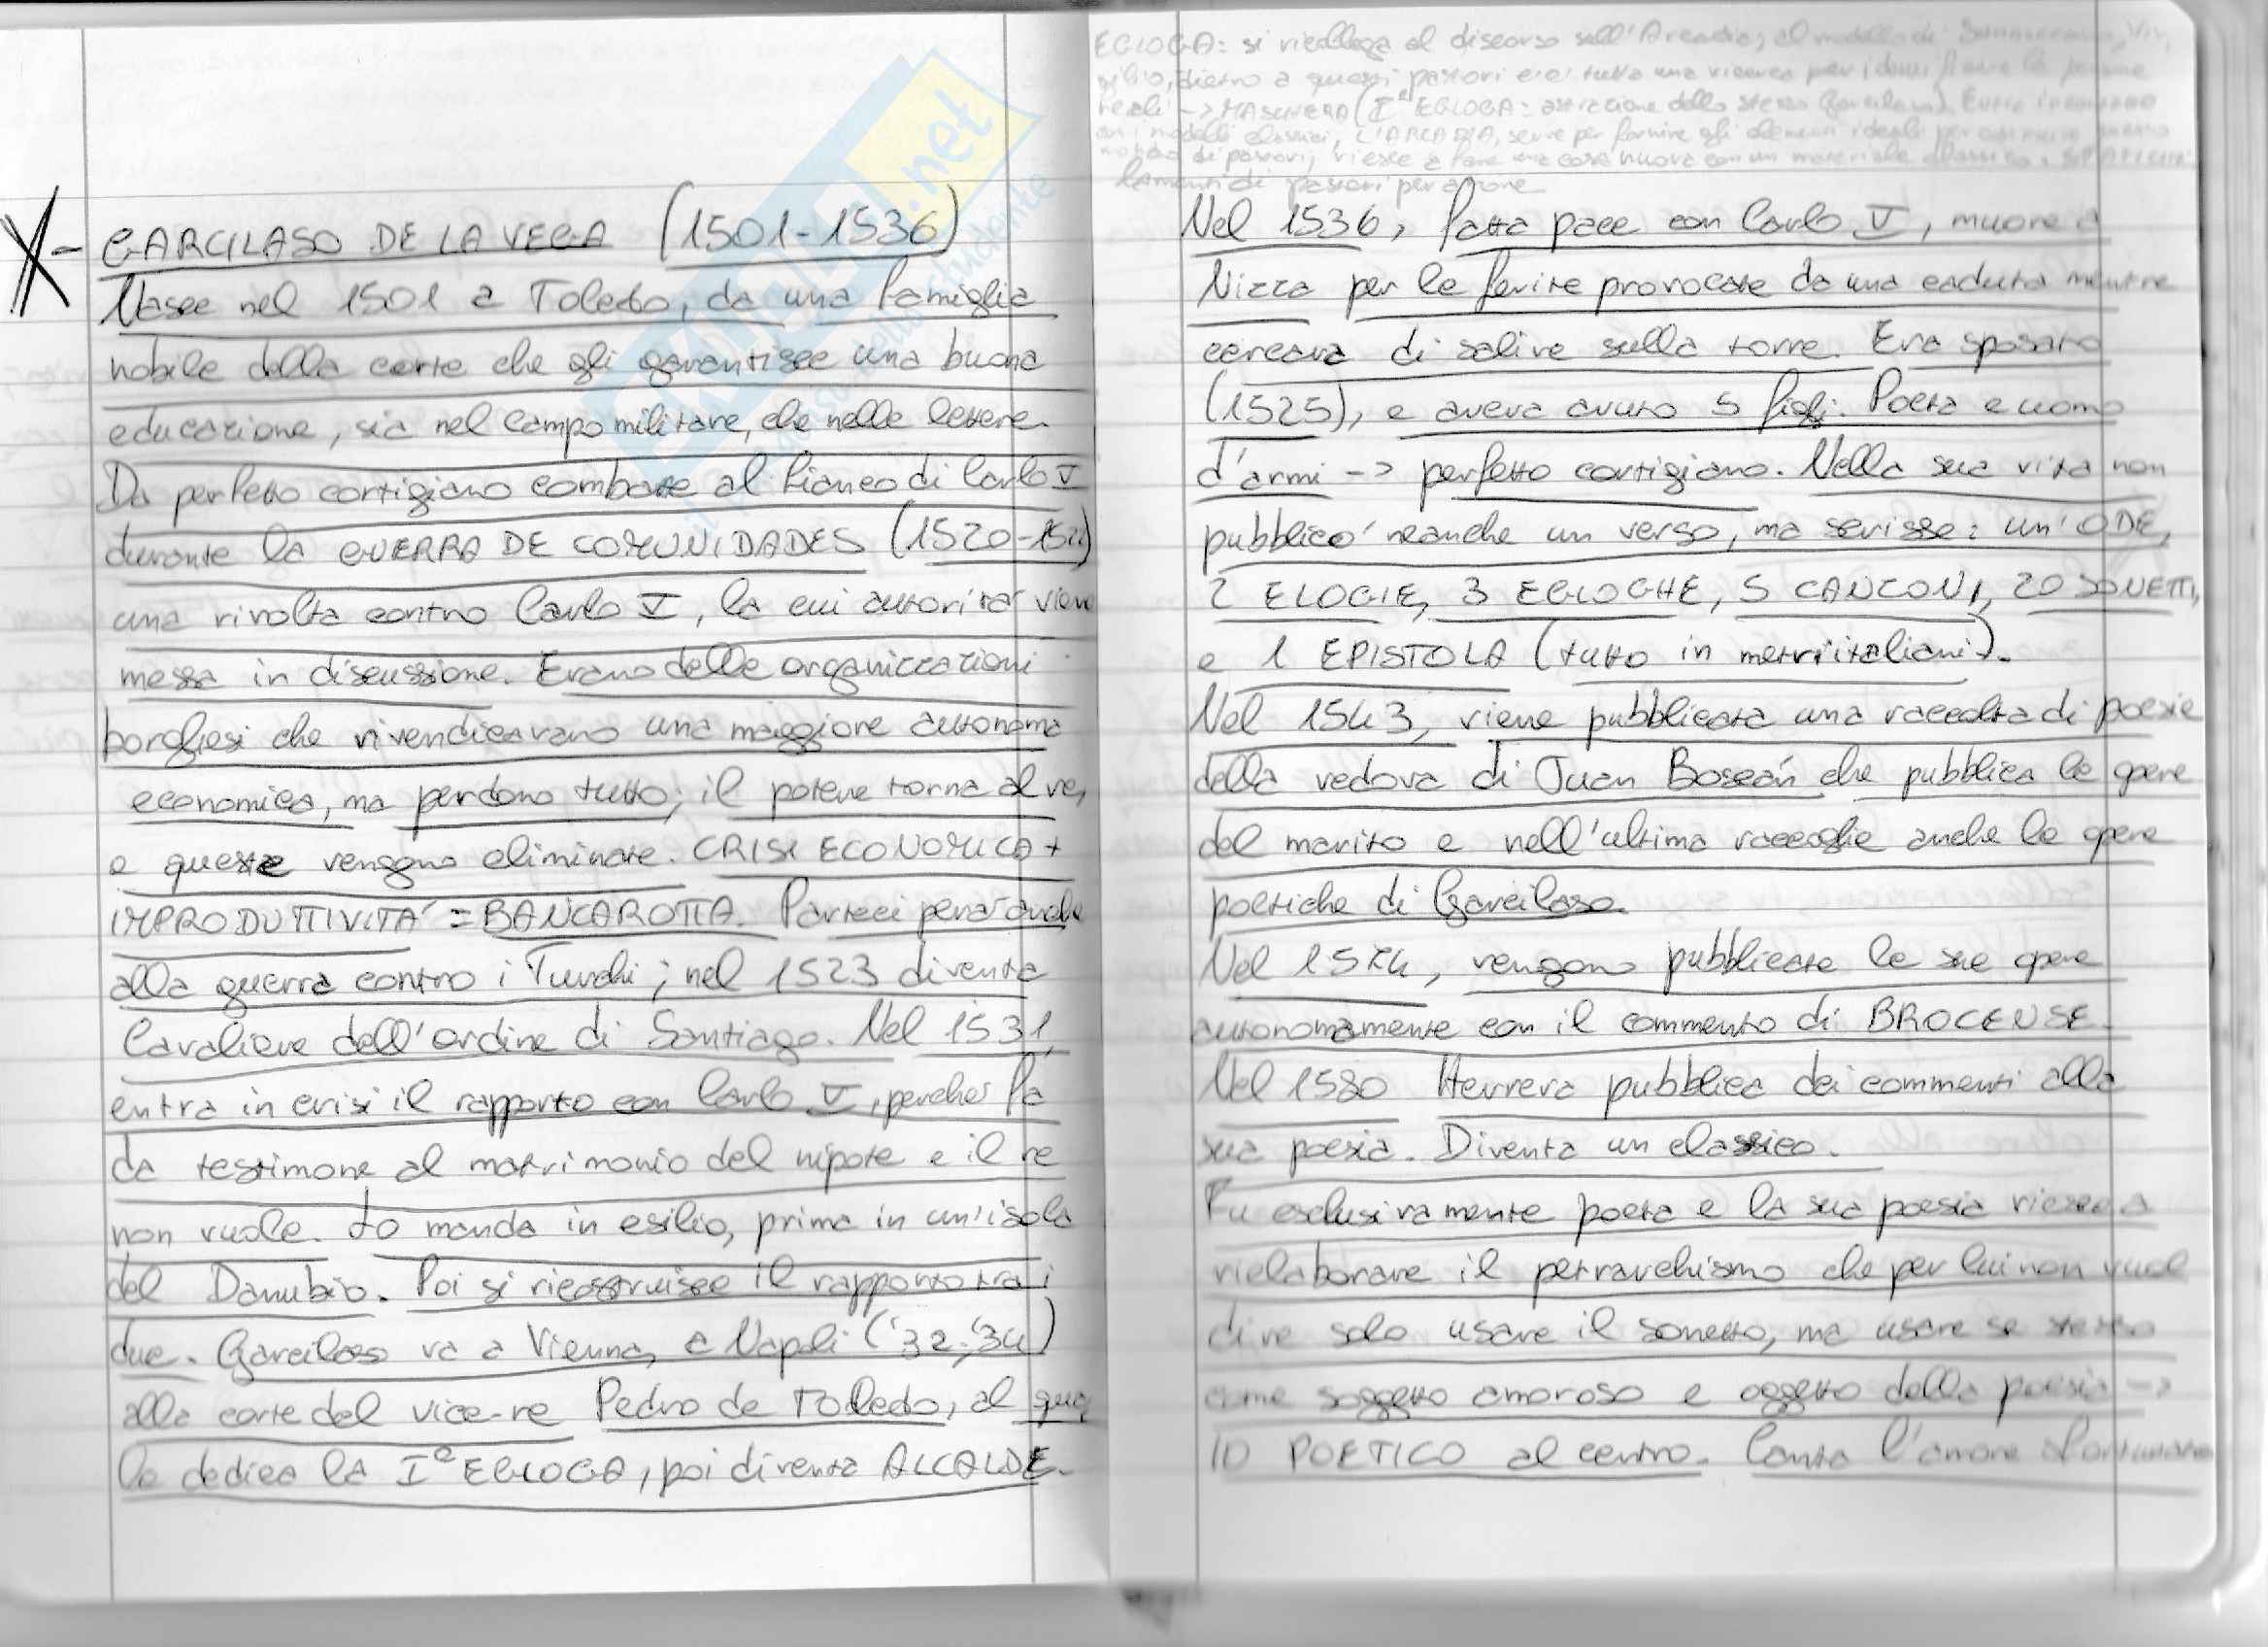 GARCILASO DE LA VEGA (1501-1536)
Nasce nel 1501 a Toledo, da una famiglia
nobile della corte che gli garantisce una buona
educazione, sia nel campo militare, che nelle lettere.
Da perfetto cortigiano combatte al fianco di Carlo V
durante la GUERRA DE COMUNIDADES (1520-1522)
una rivolta contro Carlo V, la cui autorità viene
messa in discussione. Erano delle organizzazioni
borghesi che rivendicavano una maggiore autonoma
economica, ma perdono tutto; il potere torna al re,
e queste vengono eliminate. CRISI ECONOMICA +
IMPRODUTTIVITÀ = BANCAROTTA. Parteciperà anche
alla guerra contro i Turchi; nel 1523 diventa
Cavaliere dell'ordine di Santiago. Nel 1531,
entra in crisi il rapporto con Carlo V, perché fa
da testimone al matrimonio del nipote e il re
non vuole. Lo manda in esilio, prima in un'isola
del Danubio. Poi si ricostruisce il rapporto tra i
due. Garcilaso va a Vienna, e Napoli ('32-'34)
alla corte del vice-re Pedro de Toledo, al qua
le dedica la Iª EGLOGA, poi diventa ALCALDE.
EGLOGA: si ricollega al discorso sull'Arcadia, al modello di Sannazzaro, Vir,
gilio, dietro a questi pastori c'e' tutta una ricerca per identificare le persone
reali -> MASCHERA (Iª EGLOGA: astrazione dello stesso Garcilaso).
modelli classici, L'ARCADIA, serve per fornire gli elementi ideali per
di pastori, riesce a fare una cosa nuova con un materiale classico.
lamenti di pastori per amore
Nel 1536, fatta pace con Carlo V, muore a
Nizza per le ferite provocate da una caduta mentre
cercava di salire sulla torre. Era sposato
(1525), e aveva avuto 5 figli. Poeta e uomo
d'armi -> perfetto cortigiano. Nella sua vita non
pubblico' neanche un verso, ma scrisse: un'ODE,
2 ELOGIE, 3 EGLOGHE, 5 CANZONI, 20 SONETTI,
e 1 EPISTOLA (tutto in metri italiani).
Nel 1543, viene pubblicata una raccolta di poesie
della vedova di Juan Boscán che pubblica le opere
del marito e nell'ultima raccoglie anche le opere
poetiche di Garcilaso.
Nel 1574, vengono pubblicate le sue opere
autonomamente con il commento di BROCENSE.
Nel 1580 Herrera pubblica dei commenti alla
sua poesia. Diventa un classico.
Fu esclusivamente poeta e la sua poesia riesce a
rielaborare il petrarchismo che per lui non vuol
dire solo usare il sonetto, ma usare se stesso
come soggetto amoroso e oggetto della poesia ->
IO POETICO al centro. Canta l'amore sfortunato